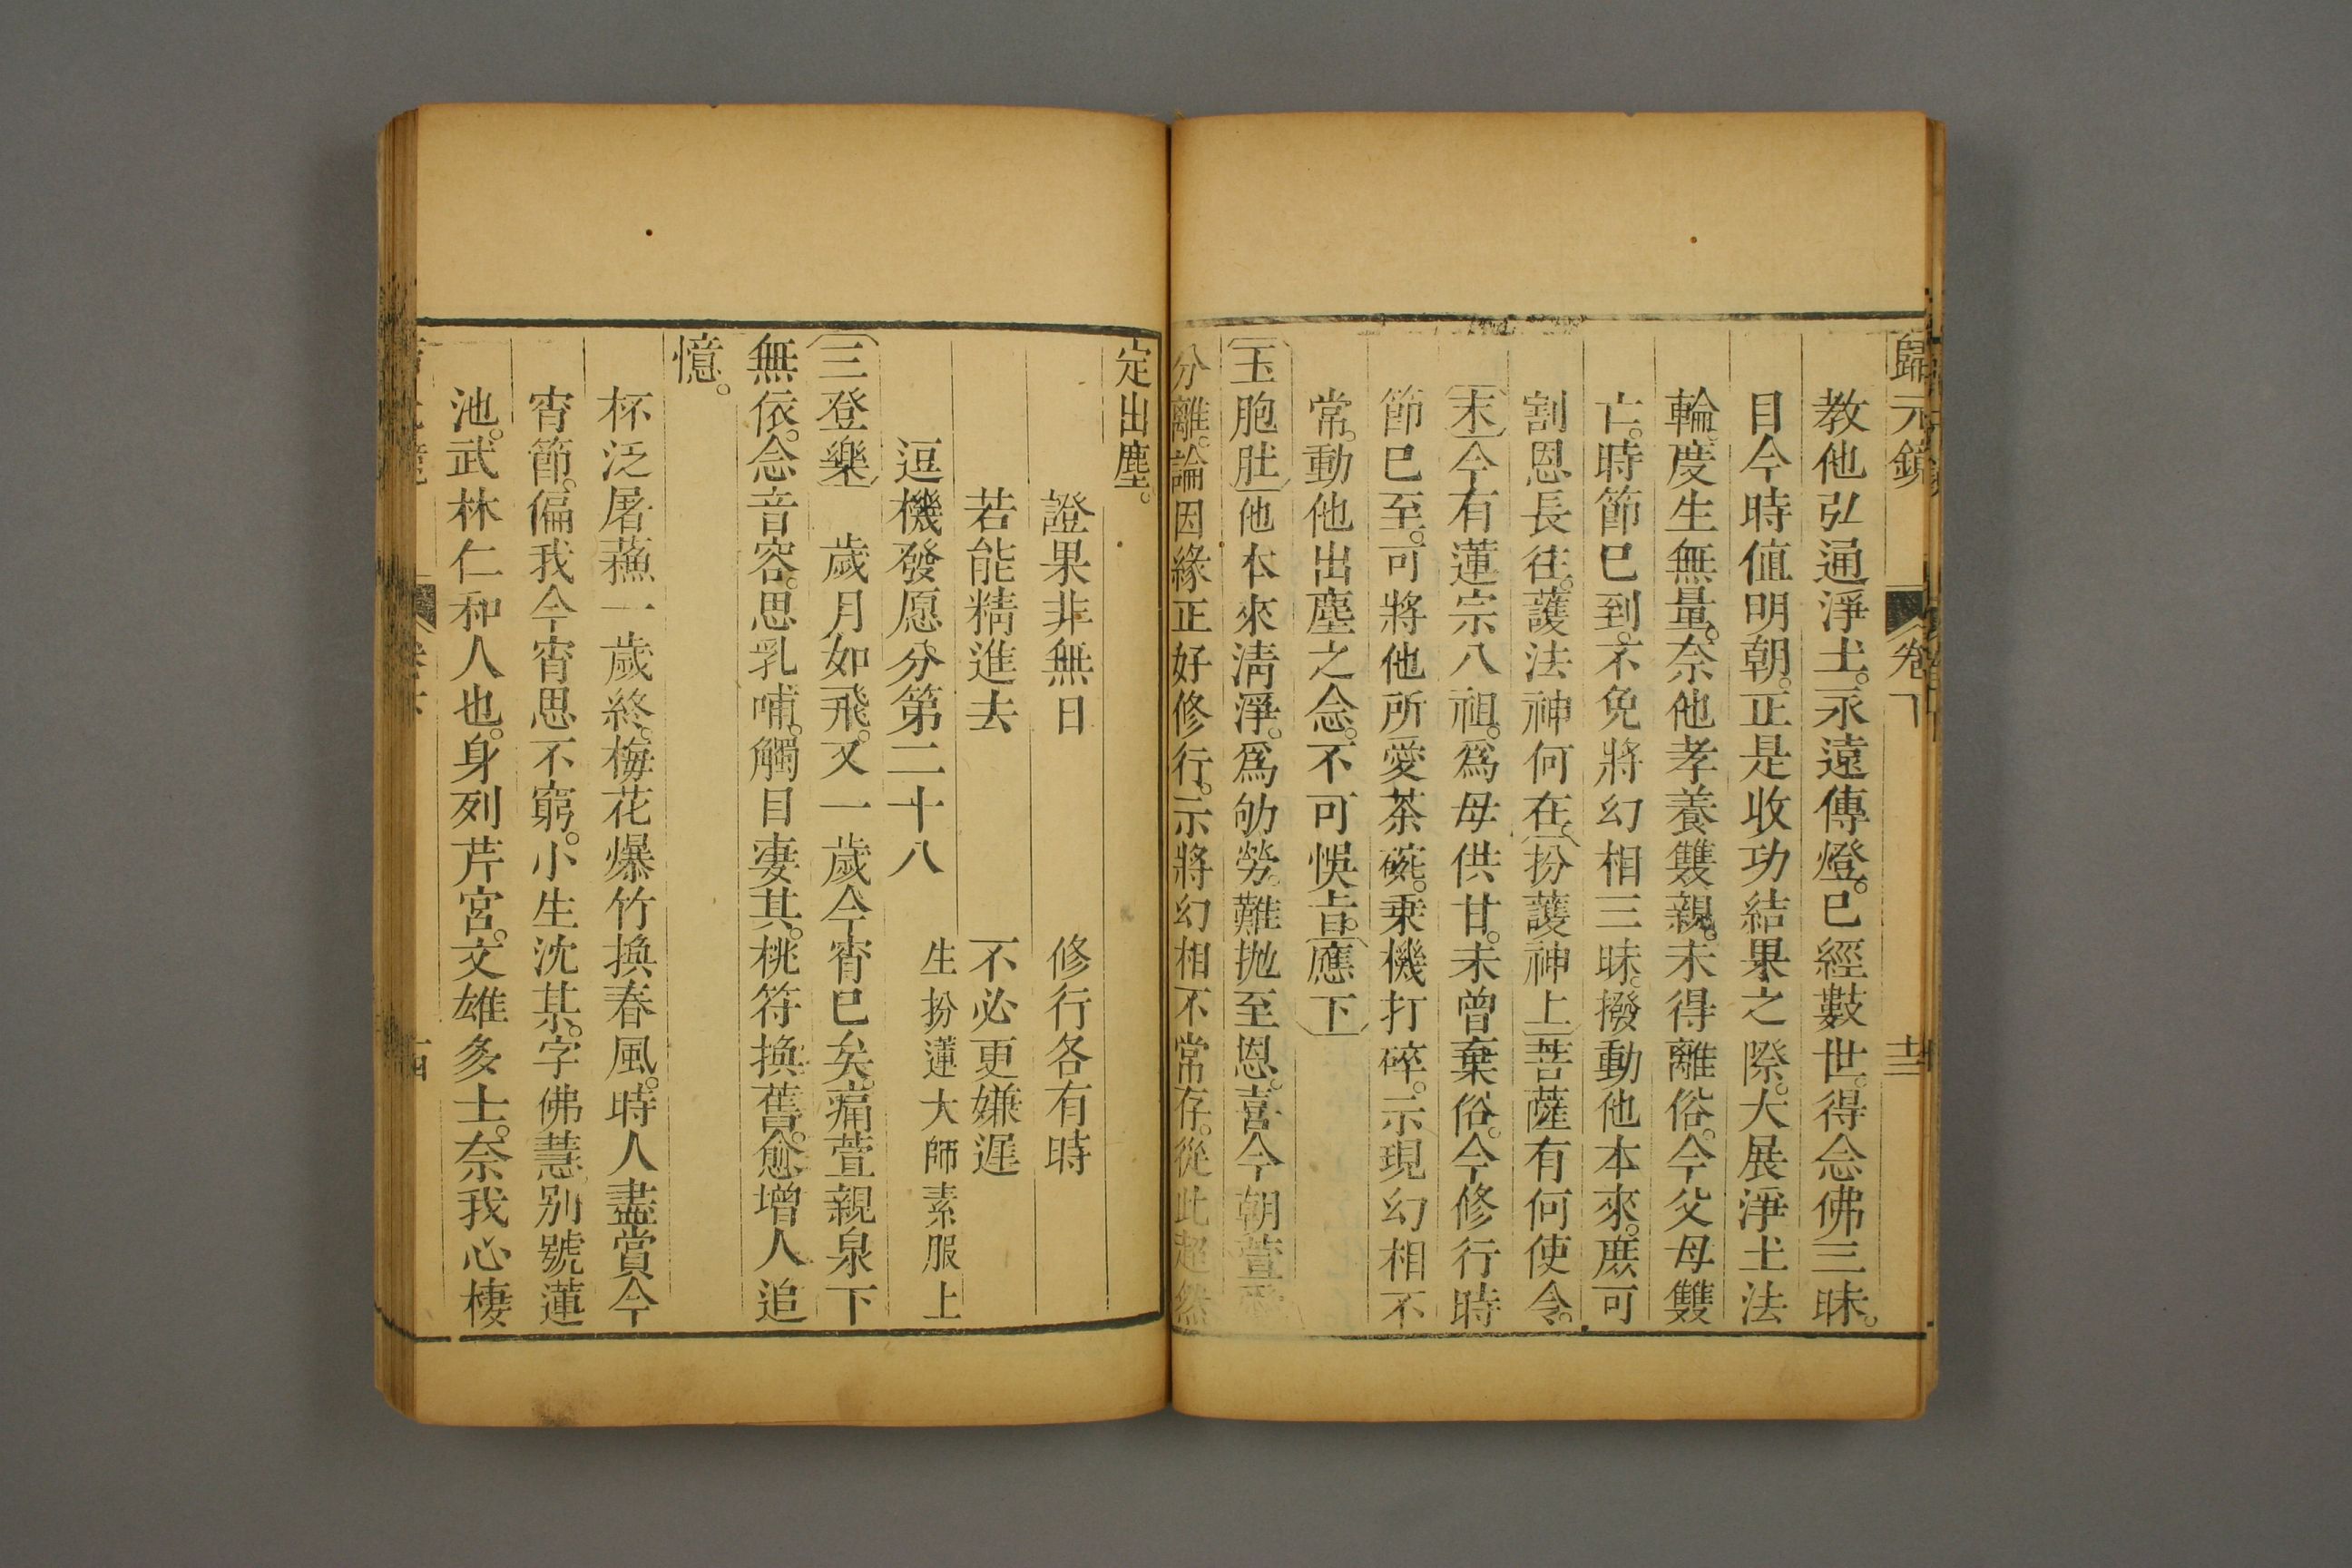 歸元鏡 卷下 十三
教他弘通淨土。永遠傳燈。已經數世。得念佛三昧。
目今時值明朝。正是收功結果之際。大展淨土法
輪。度生無量。奈他孝養雙親。未得離俗。今父母雙
亡。時節已到。不免將幻相三昧。撥動他本來。庶可
割恩長往。護法神何在。（扮護神上）菩薩有何使令。
（末）今有蓮宗八祖。爲母供甘。未曾棄俗。今修行時
節已至。可將他所愛茶碗。乘機打碎。示現幻相不
常。動他出塵之念。不可悞旨。（應下）
（玉胞肚）他本來淸淨。爲劬勞。難拋至恩。喜今朝萱
分離。論因緣正好修行。示將幻相不常存。從此超然
定出塵。
證果非無日 修行各有時
若能精進去 不必更嫌遲
逗機發愿分第二十八 生扮蓮大師素服上
（三登樂） 歲月如飛。又一歲今宵已矣。痛萱親泉下
無依。念音容。思乳哺。觸目淒其。桃符換舊。愈增人追
憶。
杯泛屠蘇一歲終。梅花爆竹換春風。時人盡賞今
宵節。偏我今宵思不窮。小生沈某。字佛慧。別號蓮
池。武林仁和人也。身列芹宮。文雄多士。奈我心棲
卷下 十四